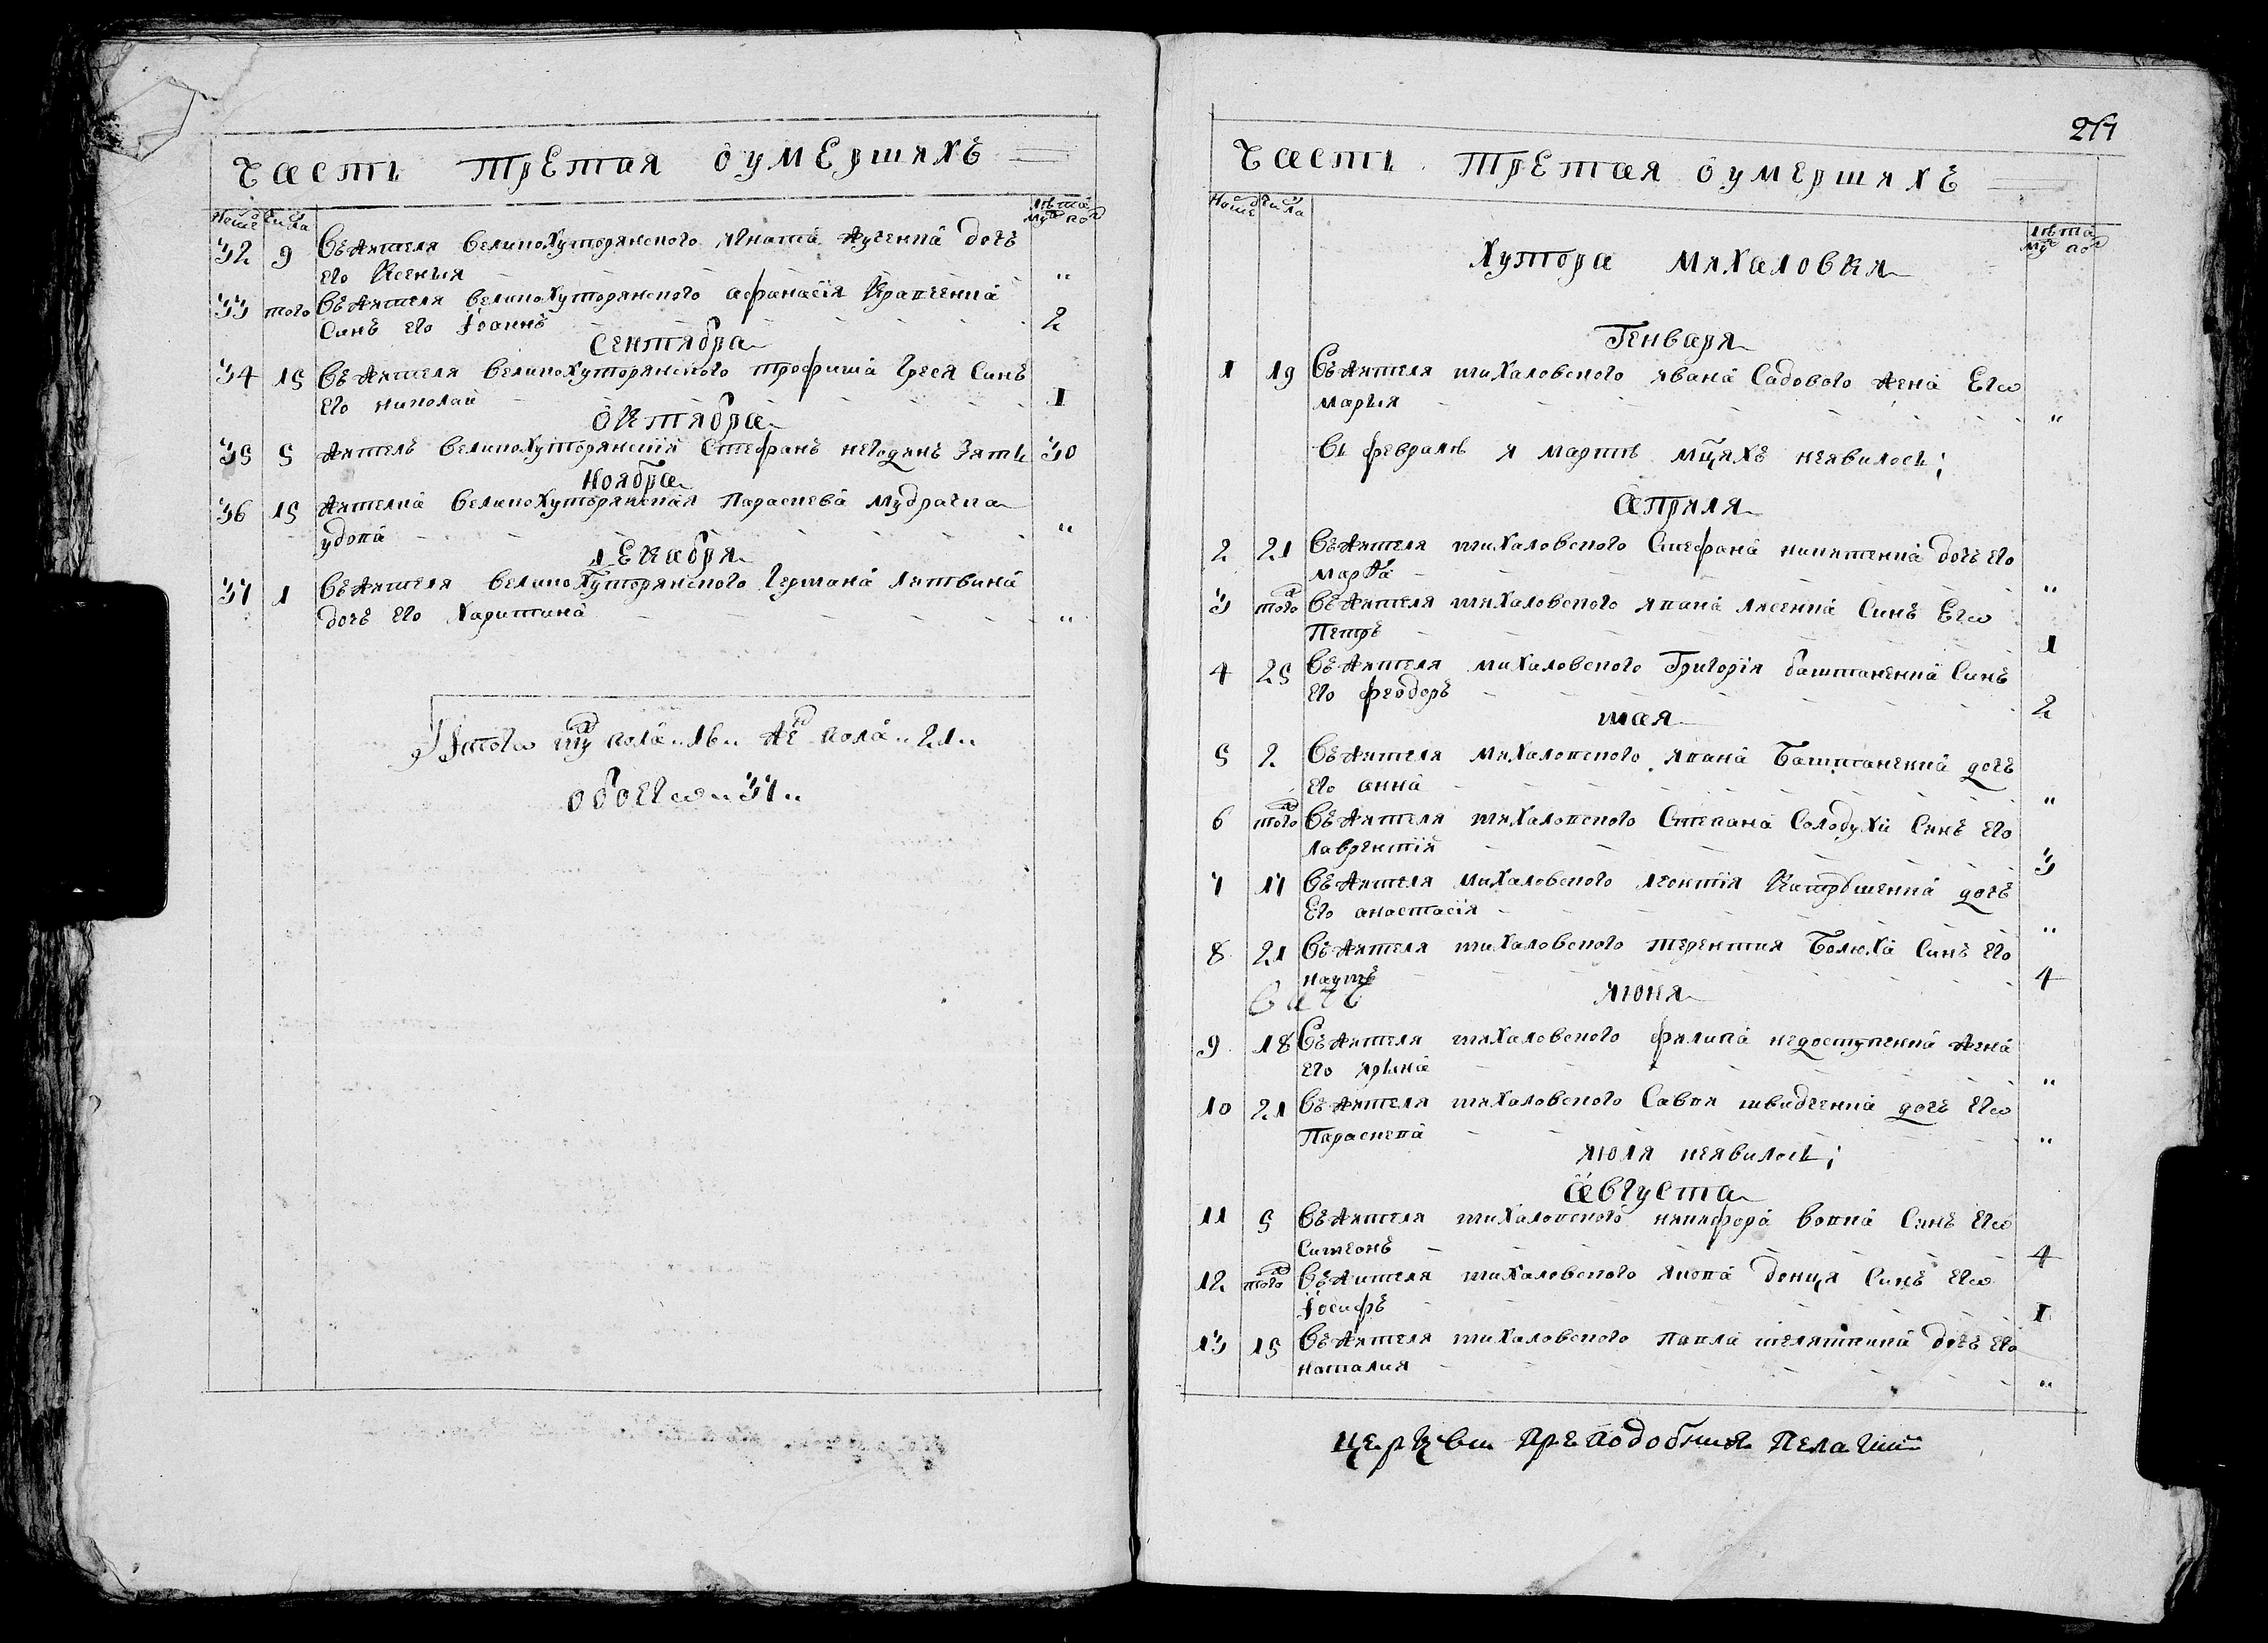 Часть третая оумершихъ
Номе Числа
Лѣта
му по
32 9 Въ жителя великохуторянского игната Кученка дочъ
его Ксенья "
33 того Въ жителя великохуторянского афанасія Крапченка
Синъ его Іоаннъ 2
Сентября
34 15 Въ жителя великохуторянского трофима Греся Синъ
его николай 1
октября
35 5 житель великохуторянскій Стефанъ негодянъ Зять 30
Ноября
36 15 жителка великохуторянская Параскева мудрачка
удова "
декабря
37 1 Въ жителя великохуторянского Германа литвина
дочъ его Харитина "
Итого му пола "16" же пола "21"
обоего "37"
217
Часть третая оумершихъ
Номе Числа
Лѣта
му по
Хутора михаловки
Генваря
1 19 Въ жителя михаловского ивана Садового жена Его
марья "
въ февралѣ и мартѣ мцяхъ неявилось;
априля
2 21 Въ жителя михаловского Стефана никитенка дочъ его
марѳа "
3 того Въ жителя михаловского ивана лисенка Синъ Его
Петръ 1
4 25 Въ жителя михаловского Григорія баштаненка Синъ
его феодоръ 2
мая
5 2 Въ жителя михаловского ивана Баштаненка дочъ
его анна "
6 того Въ жителя михаловского Степана Солодухи Синъ его
лаврентій 3
7 17 Въ жителя михаловского леонтія дочъ
Его анастасія "
8 21 Въ жителя михаловского терентия Болюха Синъ его
наумъ 4
июня
9 18 Въ жителя михаловского филипа недоступенка жена
его ирина "
10 21 Въ жителя михаловского Савки швидченка дочъ его
Параскева "
июля неявилось;
августа
11 5 Въ жителя михаловского никифора вовка Синъ его
Симеонъ 4
12 того Въ жителя михаловского якова донця Синъ его
Іосифъ 1
13 15 Въ жителя михаловского павла телятника дочъ его
наталия "
церкви преподобния Пелагии